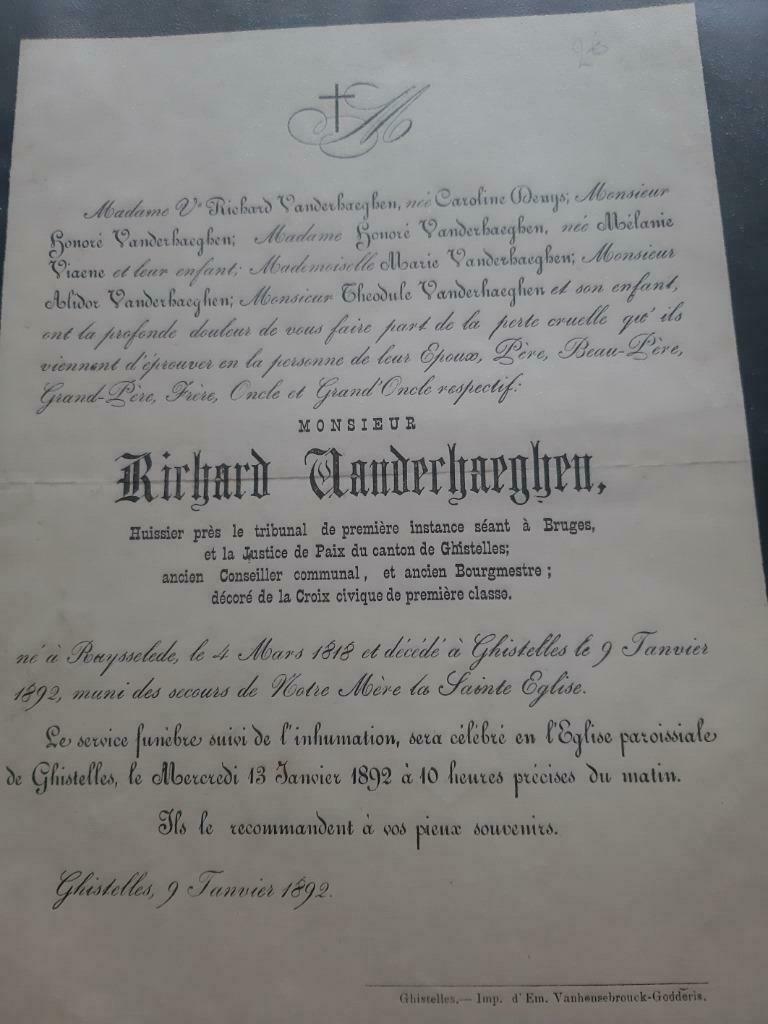 M
Madame Vᵉ Richard Vanderhaeghen, née Caroline Denys; Monsieur
Honoré Vanderhaeghen; Madame Honoré Vanderhaeghen, née Mélanie
Viaene et leur enfant; Mademoiselle Marie Vanderhaeghen; Monsieur
Alidor Vanderhaeghen; Monsieur Theodule Vanderhaeghen et son enfant,
ont la profonde douleur de vous faire part de la perte cruelle qu'ils
viennent d'éprouver en la personne de leur Epoux, Père, Beau-Père,
Grand-Père, Frère, Oncle et Grand'Oncle respectif:
MONSIEUR
Richard Vanderhaeghen,
Huissier près le tribunal de première instance séant à Bruges,
et la Justice de Paix du canton de Ghistelles;
ancien Conseiller communal, et ancien Bourgmestre;
décoré de la Croix civique de première classe.
né à Ruysselede, le 4 Mars 1818 et décédé à Ghistelles le 9 Janvier
1892, muni des secours de Notre Mère la Sainte Eglise.
Le service funèbre suivi de l'inhumation, sera célébré en l'Eglise paroissiale
de Ghistelles, le Mercredi 13 Janvier 1892 à 10 heures précises du matin.
Ils le recommandent à vos pieux souvenirs.
Ghistelles, 9 Janvier 1892.
Ghistelles.— Imp. d'Em. Vanhensebrouck-Godderis.